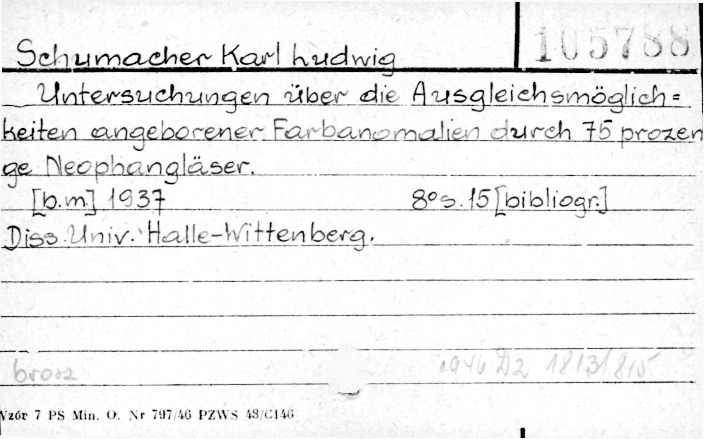 Schumacher Karl Ludwig
105788
Untersuchungen über die Ausgleichsmöglich=
keiten angeborener Farbanomalien durch 75 prozen
ge Neophangläser.
[b.m] 1937 8º s. 15 [bibliogr.]
Diss. Univ. Halle-Wittenberg.
brosz 1946 D2 1813/815
Wzór 7 PS Min. O. Nr 797/46 PZWS 48/C146